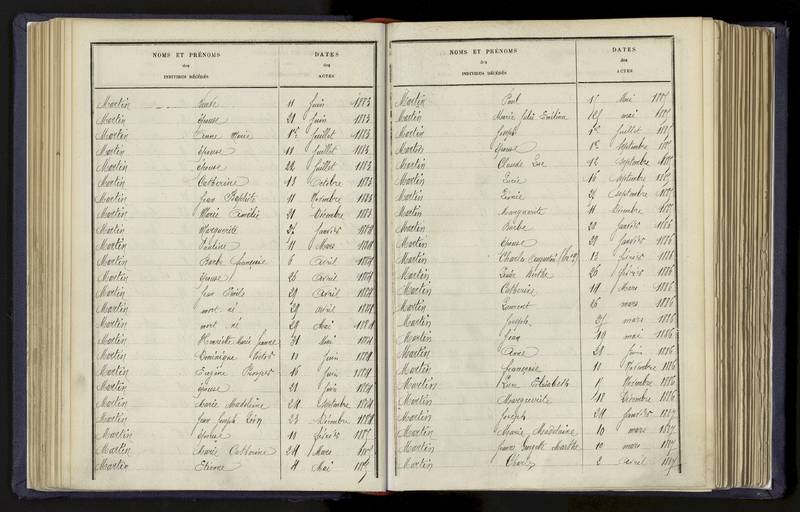 NOMS ET PRÉNOMS
des
INDIVIDUS DÉCÉDÉS
DATES
des
ACTES
Martin 11 Juin 1883
Martin épouse 21 Juin 1883
Martin Anne Marie 1er Juillet 1883
Martin épouse 11 Juillet 1883
Martin épouse 22 Juillet 1883
Martin Catherine 13 Octobre 1883
Martin Jean Baptiste 11 Novembre 1883
Martin Marie Amélie 21 Décembre 1883
Martin Marguerite Janvier 1884
Martin Pauline 11 Mars 1884
Martin Barbe françoise 6 Avril 1884
Martin épouse 26 Avril 1884
Martin Jean 29 Avril 1884
Martin mort né 29 Avril 1884
Martin mort né 29 Mai 1884
Martin Henriette Marie Jeanne 31 Mai 1884
Martin Dominique Victor 11 Juin 1884
Martin Eugène Prosper 16 Juin 1884
Martin épouse 21 Juin 1884
Martin Marie Madeleine 24 Septembre 1884
Martin Jean Joseph Léon 23 Décembre 1884
Martin épouse 11 février 1885
Martin Marie Catherine 24 Mars 1885
Martin Etienne 4 Mai 1885
NOMS ET PRÉNOMS
des
INDIVIDUS DÉCÉDÉS
DATES
des
ACTES
Martin Paul Mai 1885
Martin Marie Julie Emilina mai 1885
Martin Joseph Juillet 1885
Martin épouse 1er Septembre 1885
Martin Claude Luc 12 Septembre 1885
Martin Lucie 16 Septembre 1885
Martin Léonie Septembre 1885
Martin Marguerite 11 Décembre 1885
Martin Barbe 20 Janvier 1886
Martin épouse 29 Janvier 1886
Martin Charles Auguste 13 février 1886
Martin Berthe 26 février 1886
Martin Catherine 19 Mars 1886
Martin 26 mars 1886
Martin Joseph mars 1886
Martin Jean 19 mai 1886
Martin Anne 28 Juin 1886
Martin françoise 11 Novembre 1886
Martin Elisabeth Novembre 1886
Martin Marguerite 18 Décembre 1886
Martin Joseph 24 Janvier 1887
Martin Marie Madelaine 10 mars 1887
Martin Marthe 10 mars 1887
Martin Charles 2 Avril 1887